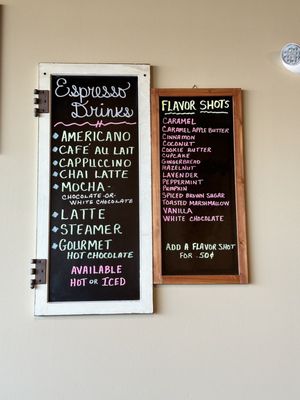 Espresso
Drinks
AMERICANO
CAFE AU LAIT
CAPPUCCINO
CHAI LATTE
MOCHA -
CHOCOLATE OR
WHITE CHOCOLATE
LATTE
STEAMER
GOURMET
HOT CHOCOLATE
AVAILABLE
HOT OR ICED
FLAVOR SHOTS
CARAMEL
CARAMEL APPLE BUTTER
CINNAMON
COCONUT
COOKIE BUTTER
CUPCAKE
GINGERBREAD
HAZELNUT
LAVENDER
PEPPERMINT
PUMPKIN
SPICED BROWN SUGAR
TOASTED MARSHMALLOW
VANILLA
WHITE CHOCOLATE
ADD A FLAVOR SHOT
FOR .50¢